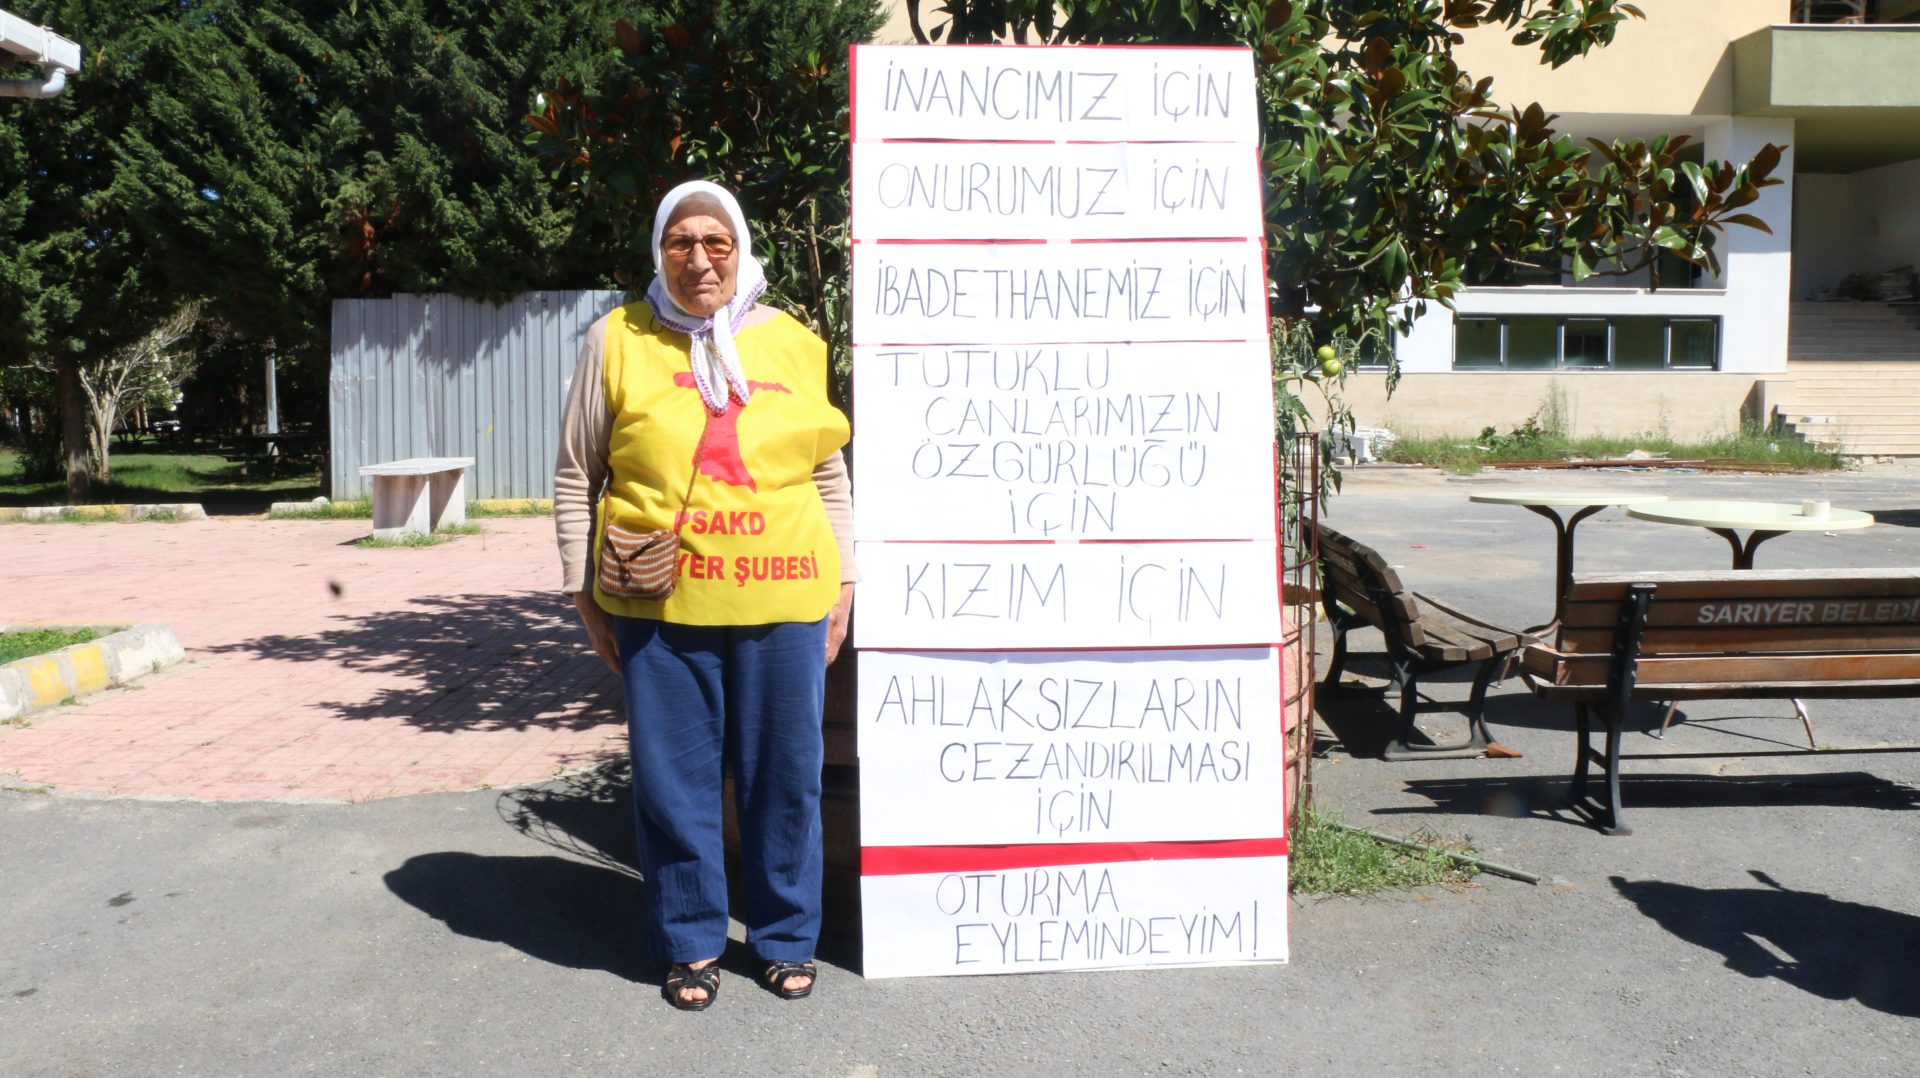 İNANCIMIZ İÇİN
ONURUMUZ İÇİN
İBADETHANEMİZ İÇİN
TUTUKLU
CANLARIMIZIN
ÖZGÜRLÜĞÜ
İÇİN
KIZIM İÇİN
AHLAKSIZLARIN
CEZANDIRILMASI
İÇİN
OTURMA
EYLEMİNDEYİM!
PSAKD
YER ŞUBESİ
SARIYER BELEDİ